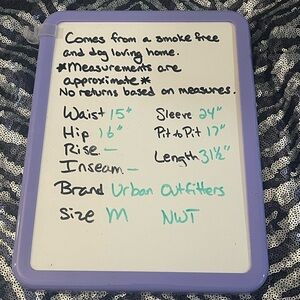 Comes from a smoke free
and dog loving home.
*Measurements are
approximate*
No returns based on measures.
Waist 15" Sleeve 24"
Hip 16" Pit to Pit 17"
Rise - Length 31½"
Inseam -
Brand Urban Outfitters
Size M NWT